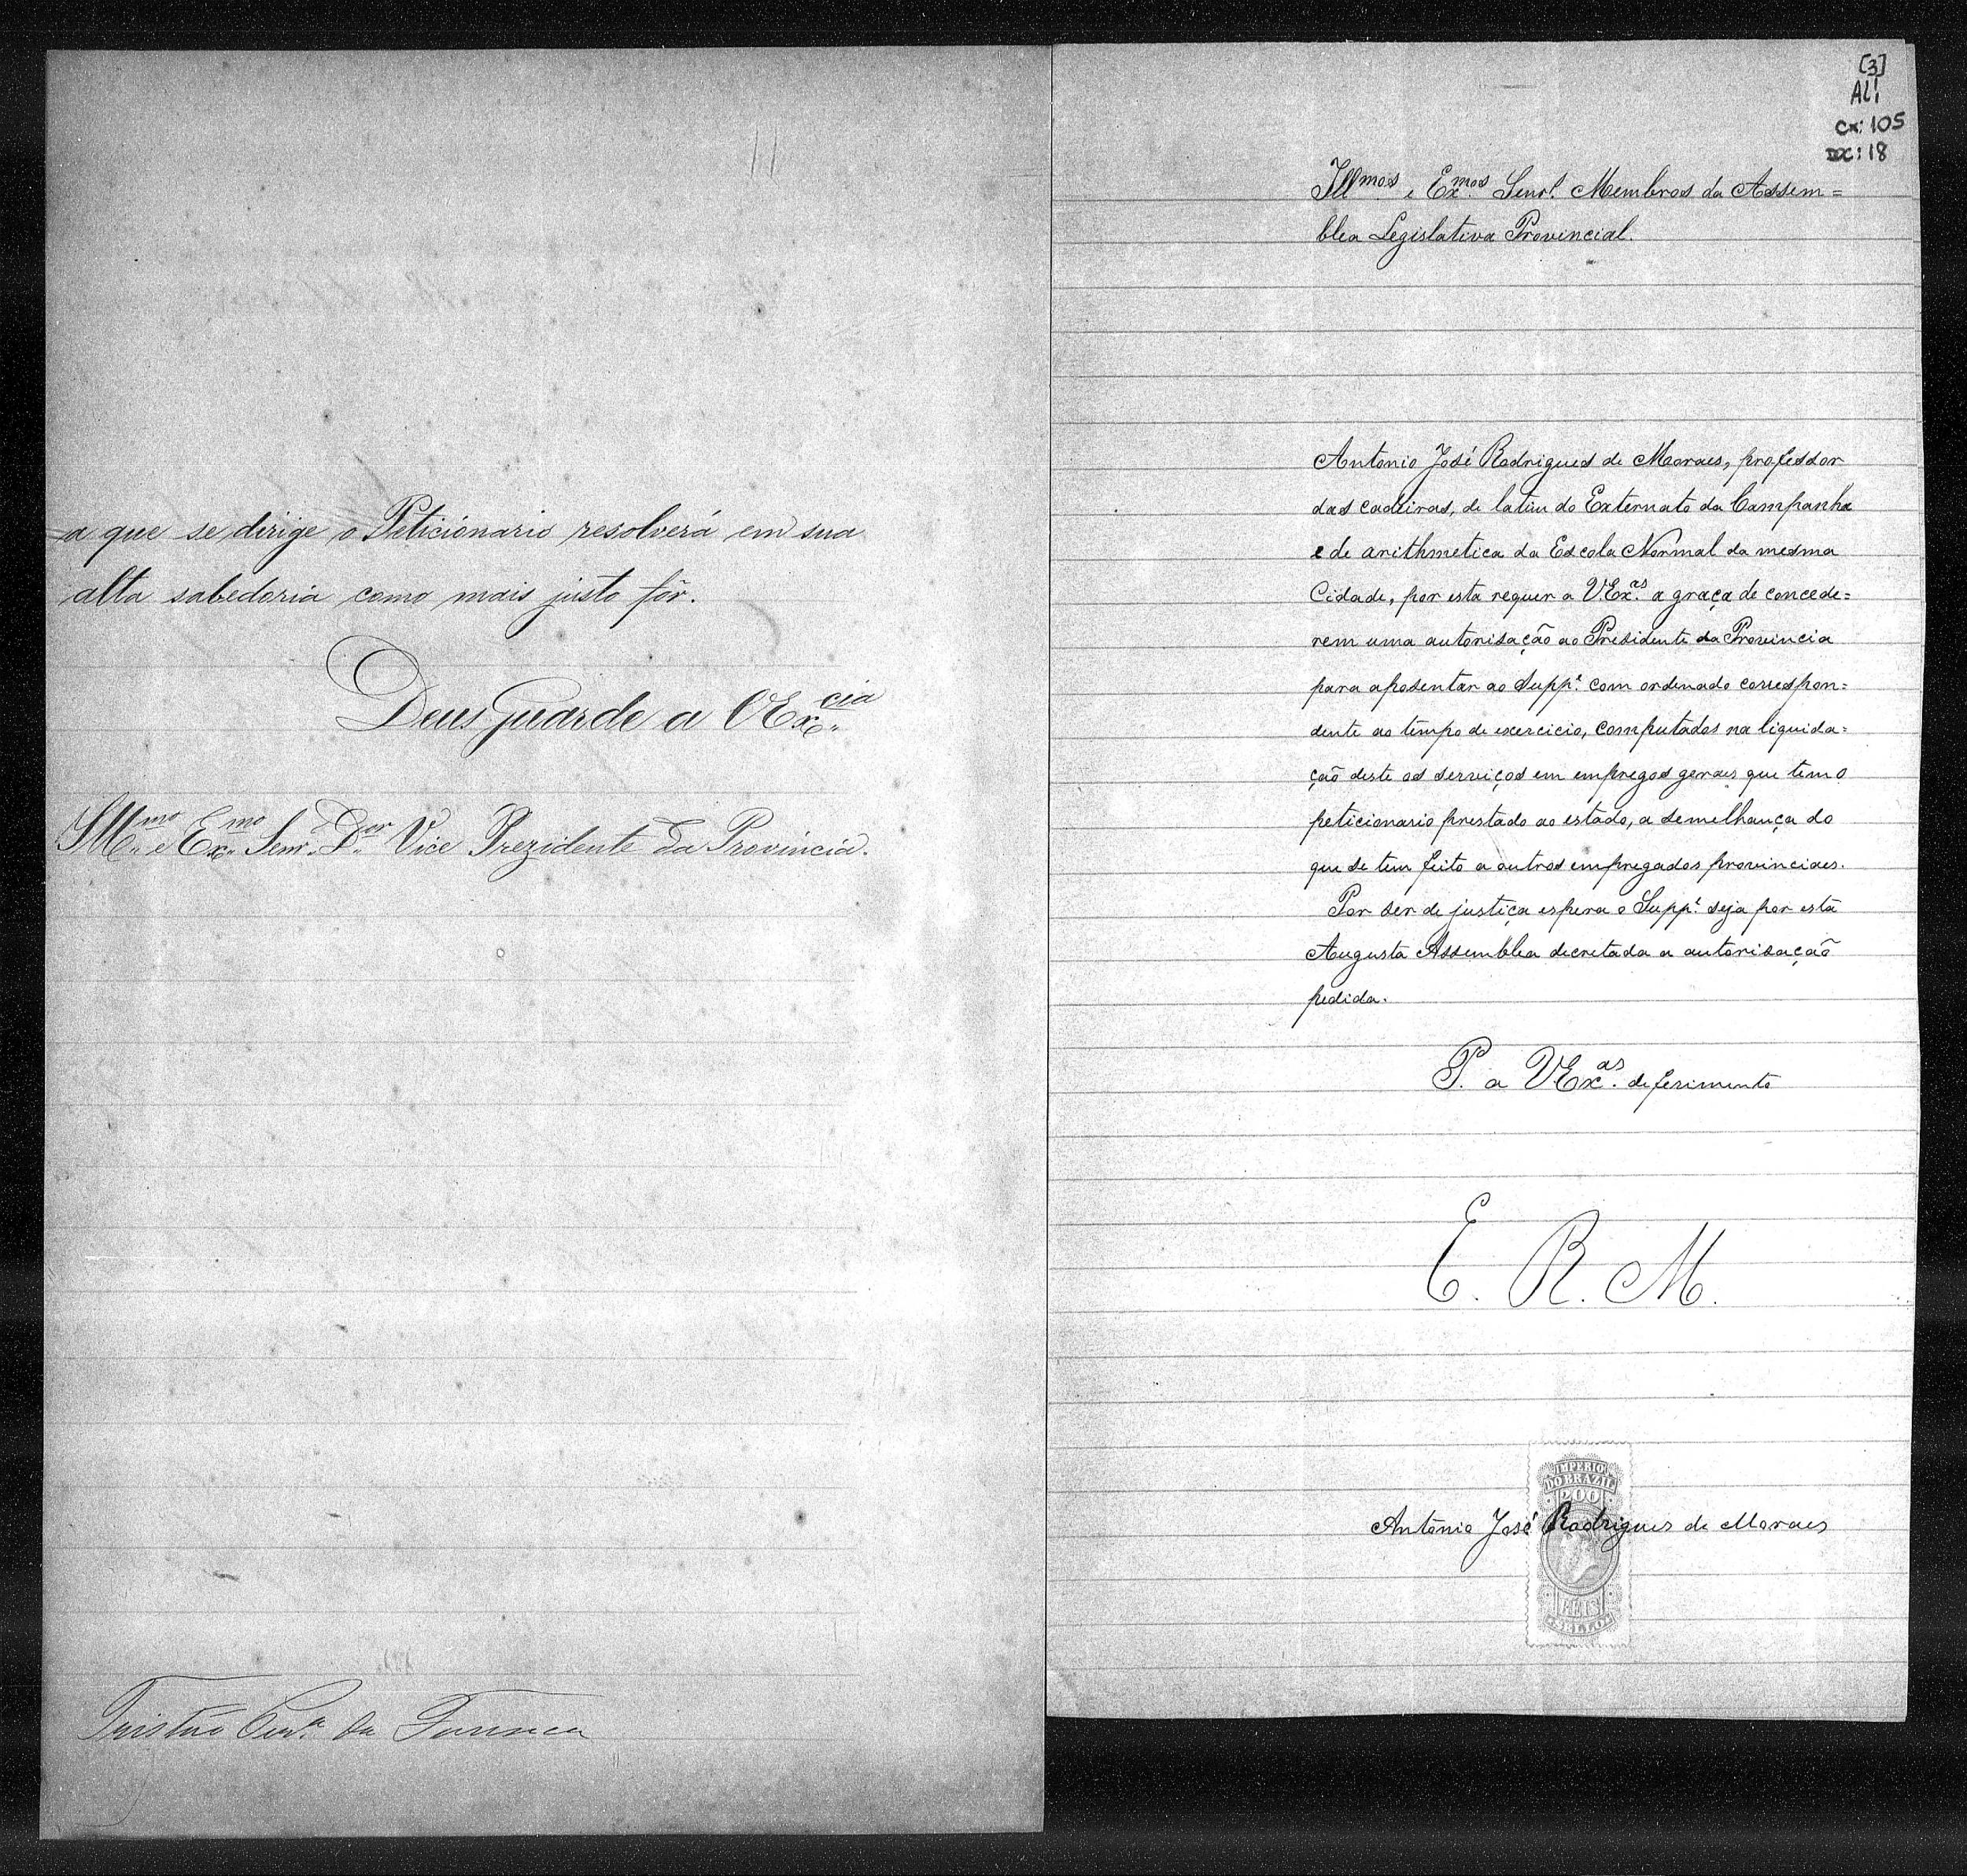 a que se dirige o Peticionario resolverá em sua
alta sabedoria como mais justo fôr.
Deus Guarde a VEx.cia
Illmo e Exmo Senr. Dor Vice Prezidente da Provincia.
Tristão Per.a da Fonseca
[3]
AL1
CX: 105
DOC: 18
Illmos e Ex.mos Senr.s Membros da Assem=
blea Legislativa Provincial.
Antonio José Rodrigues de Moraes, professor
das cadeiras, de latim do Externato da Campanha
e de arithmetica da Escola Normal da mesma
Cidade, por esta requer a V.Ex.as a graça de concede=
rem uma autorisação ao Presidente da Provincia
para aposentar ao Supp.e com ordenado correspon=
dente ao tempo de exercicio, computados na liquida=
ção deste os serviços em empregos geraes que tem o
peticionario prestado ao estado, a semelhança do
que se tem feito a outros empregados provinciaes.
Por ser de justiça espera o Supp.e seja por esta
Augusta Assemblea decretada a autorisação
pedida.
P. a VEx.as deferimento
E. R. M.
IMPERIO
DO BRAZIL
200
Antonio José Rodrigues de Moraes
REIS
SELLO